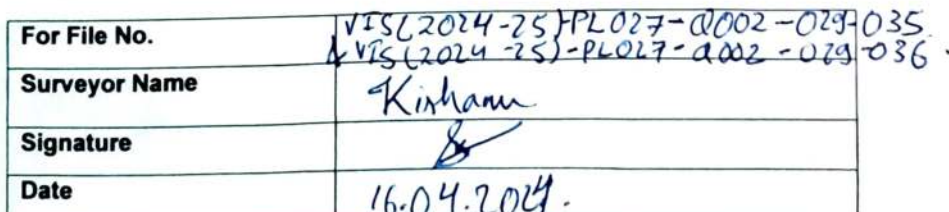 For File No. VIS(2024-25)-PL027-Q002-029-035
& VIS(2024-25)-PL027-Q002-029-036.
Surveyor Name
Signature
Date 16.04.2024.